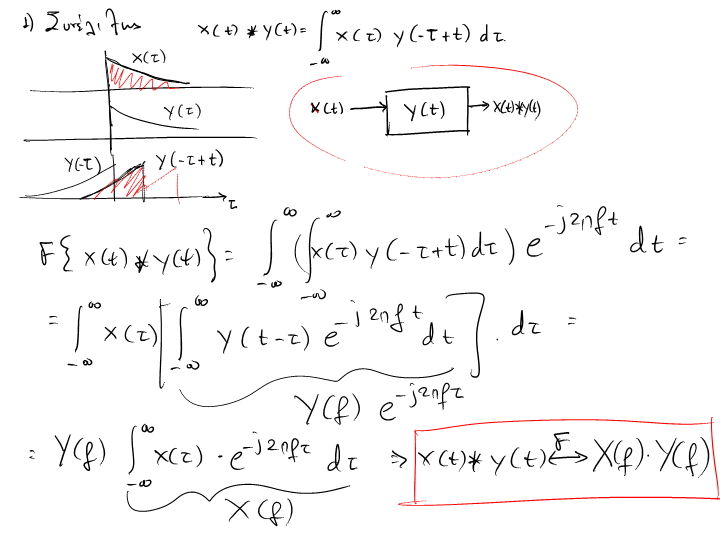 1) Συνέλιξη x(t) * y(t) = ∫_{-∞}^{∞} x(τ) y(-τ+t) dτ.
x(τ)
y(τ)
y(-τ) y(-τ+t)
τ
x(t) → y(t) → x(t)*y(t)
F{ x(t) * y(t) } = ∫_{-∞}^{∞} ( ∫_{-∞}^{∞} x(τ) y(-τ+t) dτ ) e^{-j2πft} dt =
= ∫_{-∞}^{∞} x(τ) [ ∫_{-∞}^{∞} y(t-τ) e^{-j2πft} dt ] . dτ =
Y(f) e^{-j2πfτ}
= Y(f) ∫_{-∞}^{∞} x(τ) · e^{-j2πfτ} dτ ⇒ x(t) * y(t) ⟷^{F} X(f) · Y(f)
X(f)